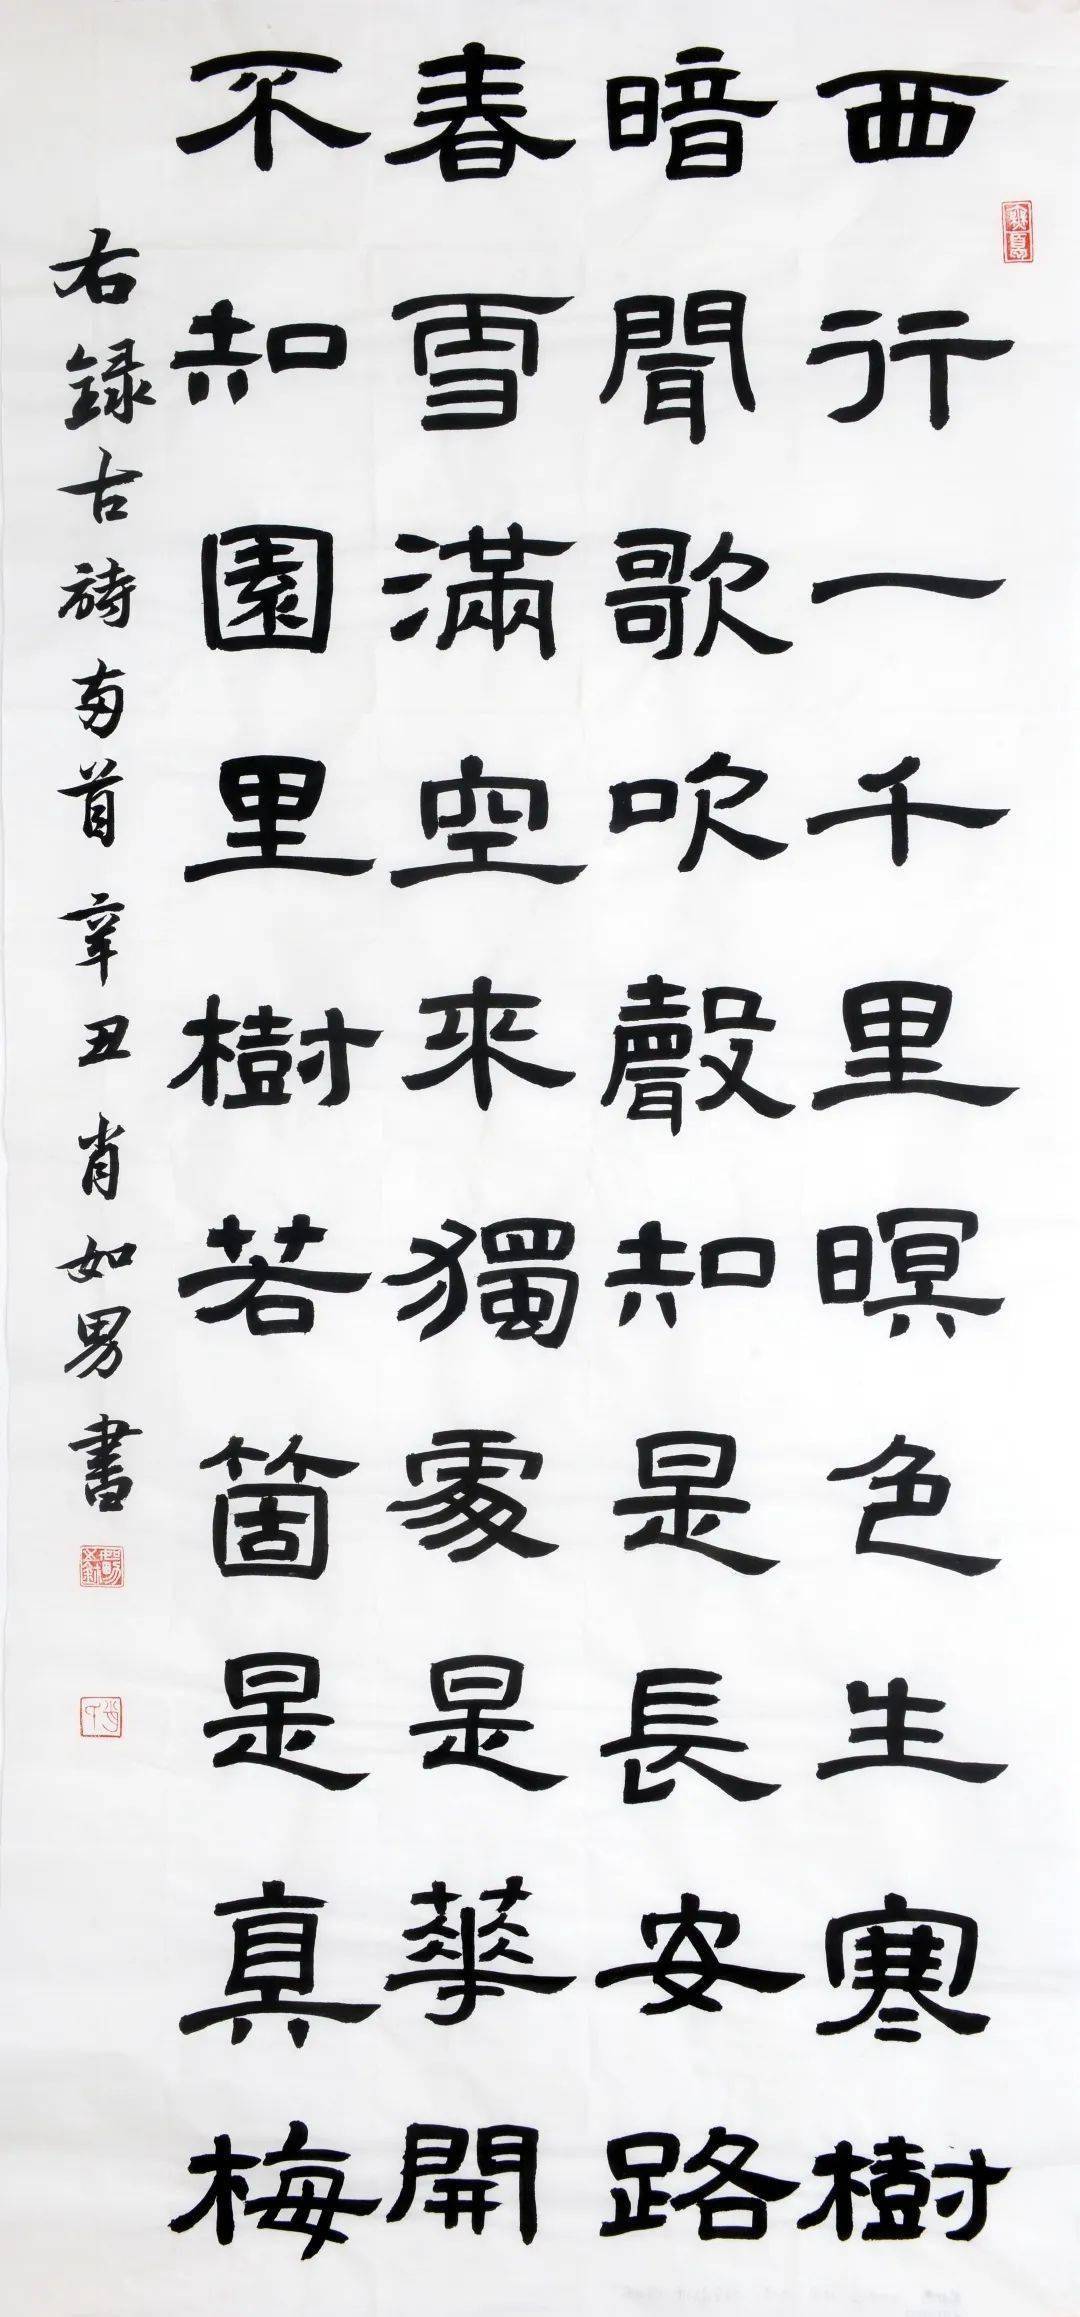 西行一千里暝色生寒樹
暗聞歌吹聲知是長安路
春雪滿空來獨處是華開
不知園里樹若箇是真梅
右録古詩两首辛丑肖如男書